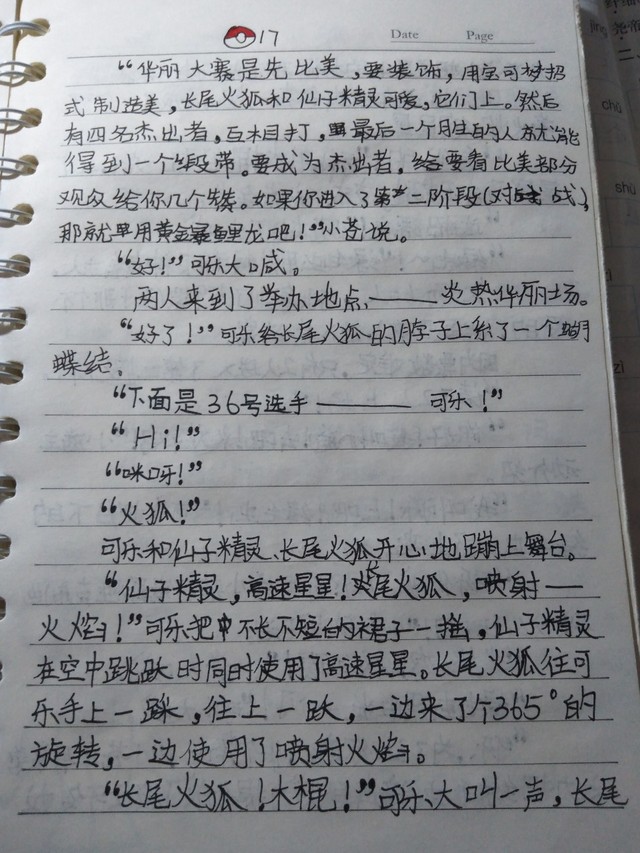 17
Date Page
“华丽大赛是先比美，要装饰，用宝可梦招
式制造美，长尾火狐和仙子精灵可爱，它们上。然后
有四名杰出者，互相打，最后一个胜的人就能
得到一个缎带。要成为杰出者，要看比美部分
观众给你几个赞。如果你进入了第二阶段(对战)，
那就用黄金暴鲤龙吧！”小苍说。
“好！”可乐大喊。
两人来到了举办地点——炎热华丽场。
“好了！”可乐给长尾火狐的脖子上系了一个蝴
蝶结。
“下面是36号选手——可乐！”
“Hi！”
“咪呀！”
“火狐！”
可乐和仙子精灵、长尾火狐开心地蹦上舞台。
“仙子精灵，高速星星！长尾火狐，喷射—
火焰！”可乐把不长不短的裙子一摇，仙子精灵
在空中跳跃时同时使用了高速星星。长尾火狐往可
乐手上一踩，往上一跃，一边来了个365°的
旋转，一边使用了喷射火焰。
“长尾火狐！木棍！”可乐大叫一声，长尾